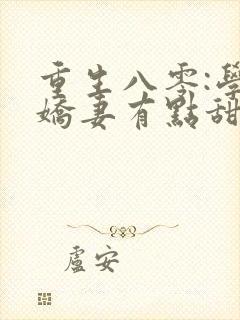 重生八零:學
嬌妻有點甜
盧安